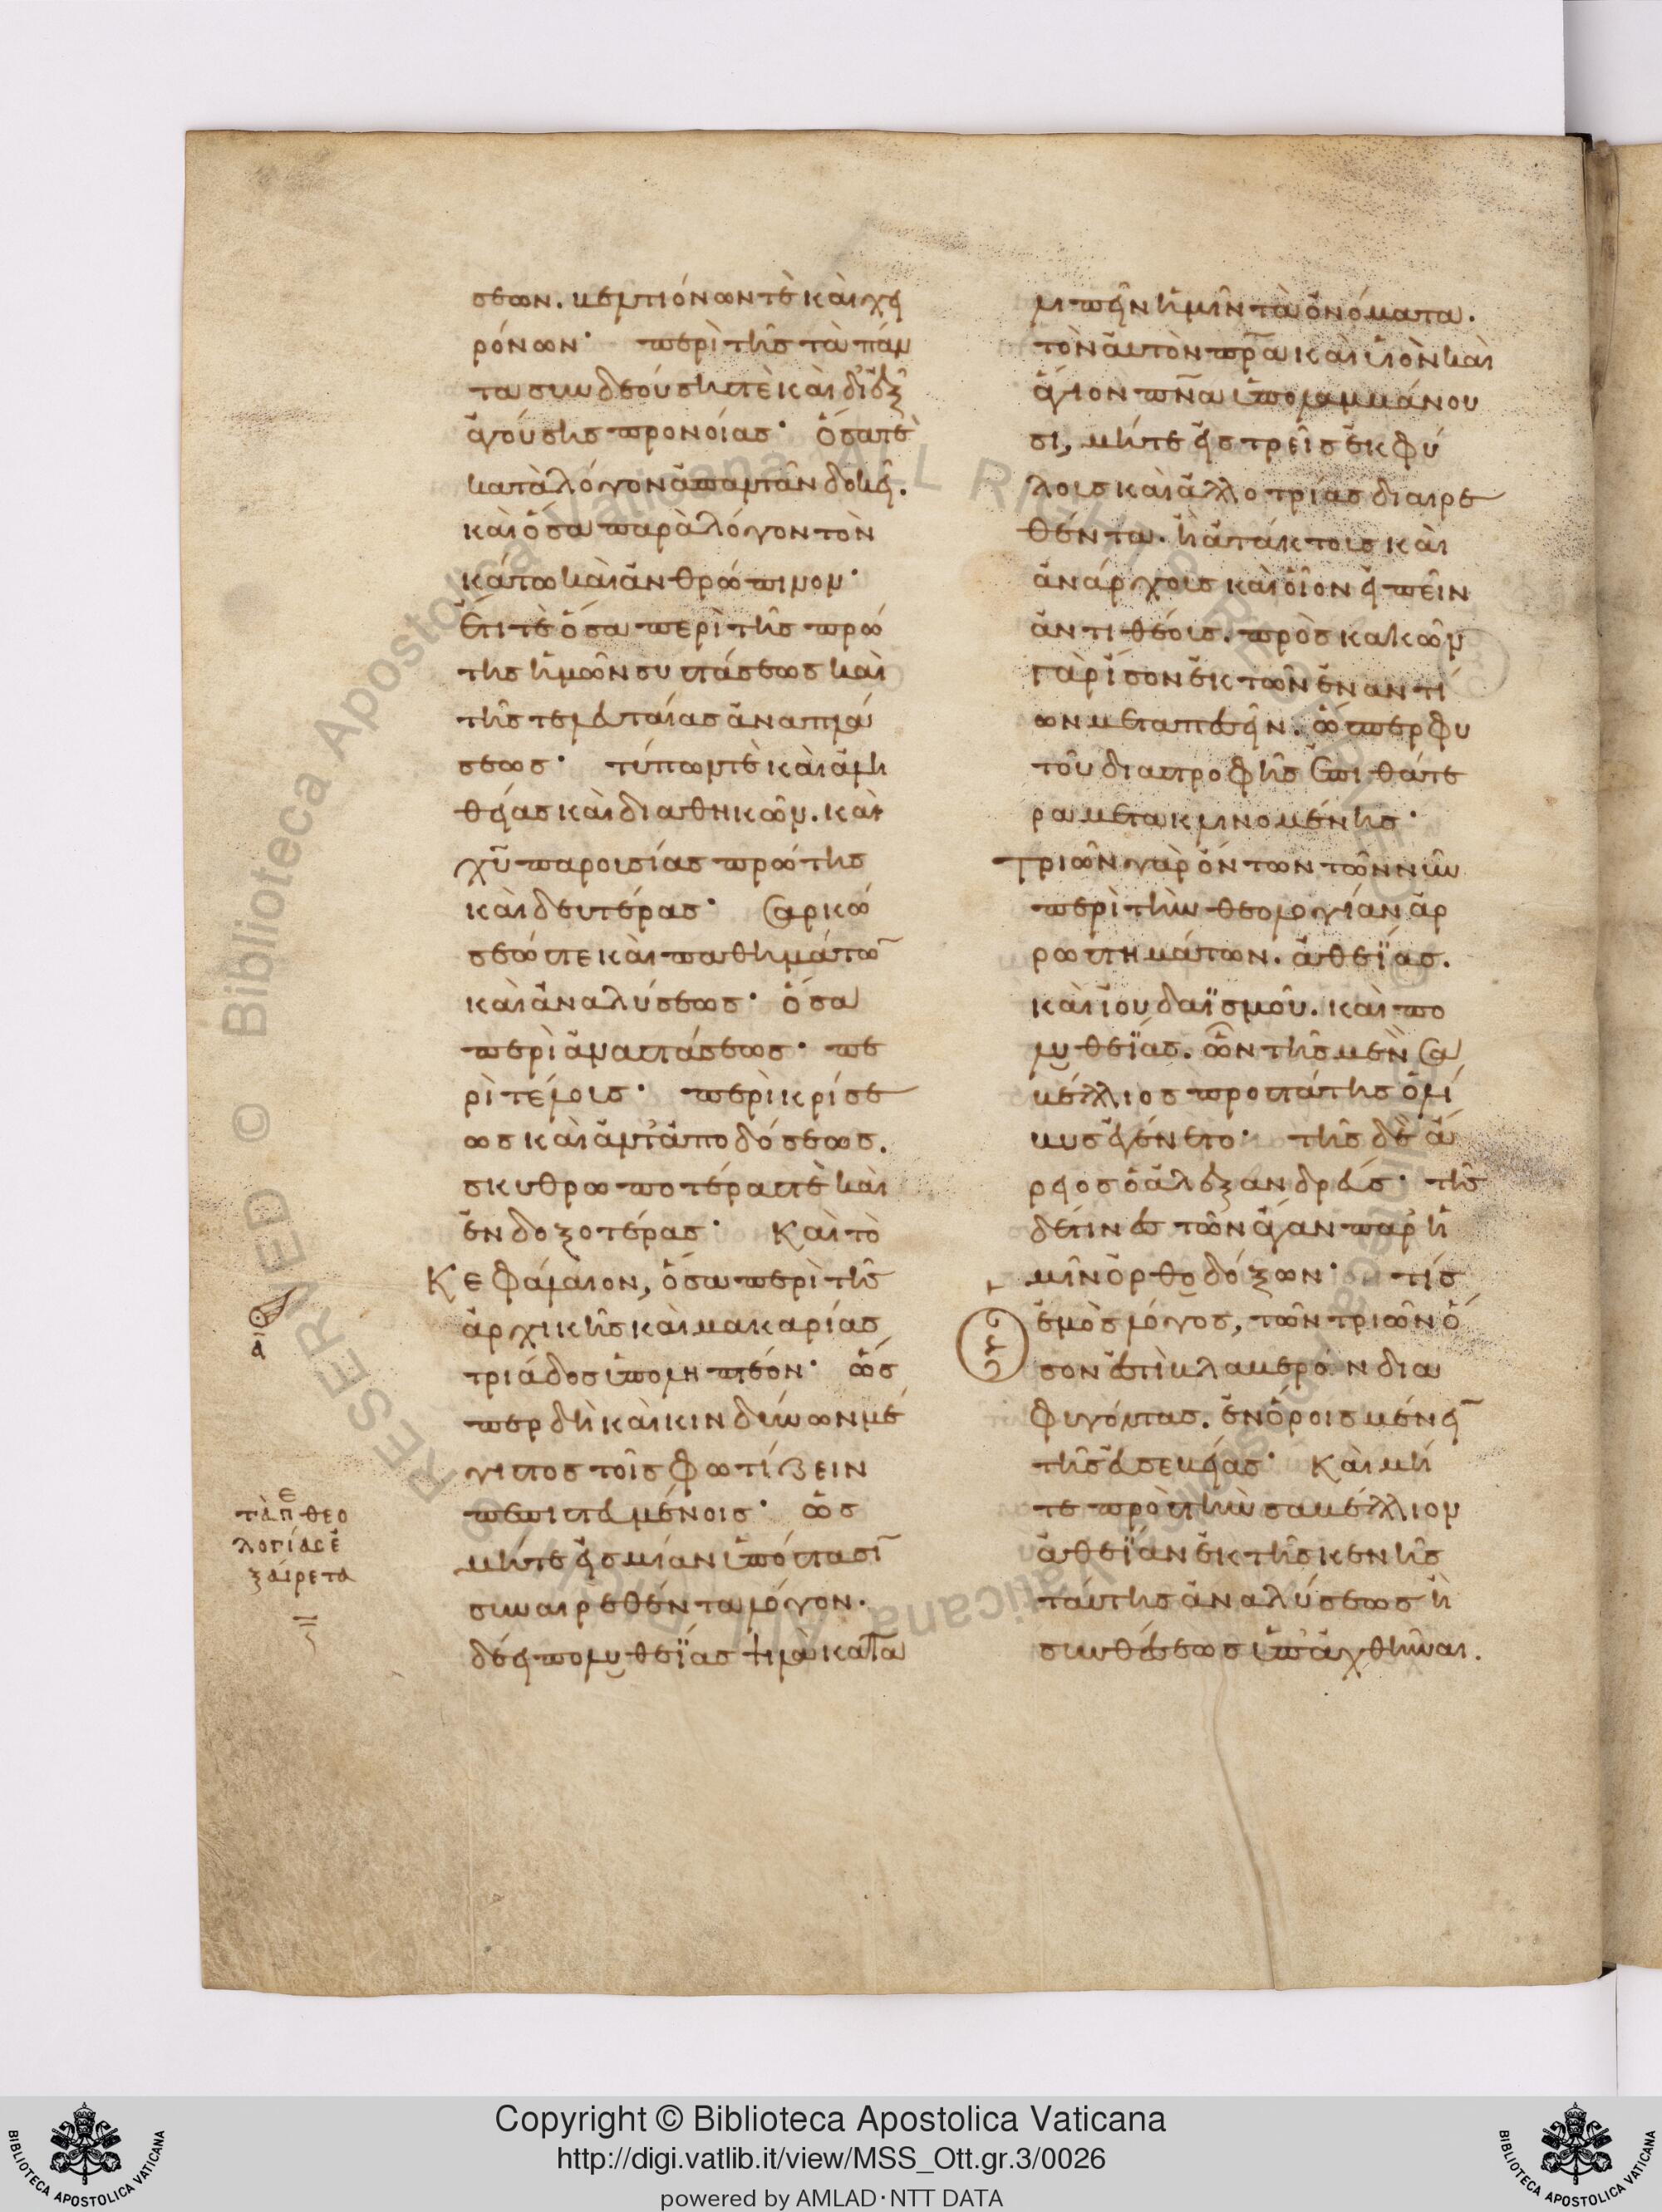 σεων. βελτιόνων τὲ καὶ χει
ρόνων· περὶ τῆς τὰ πάν
τα συνδεούσης τὲ καὶ διεξ
αγούσης προνοίας· ὅσα τὲ
κατὰ λόγον ἀπαντᾶν δοκεῖ.
καὶ ὅσα παρὰ λόγον τὸν
κάτω καὶ ἀνθρώπινον·
ἔτι τὲ ὅσα περὶ τῆς πρώ
της ἡμῶν συστάσεως καὶ
τῆς τελευταίας ἀναπλά
σεως· τύπων τὲ καὶ ἀλη
θείας καὶ διαθηκῶν. καὶ
χῦ παρουσίας πρώτης
καὶ δευτέρας· σαρκώ
σεώς τε καὶ παθημάτω̅
καὶ ἀναλύσεως· ὅσα
περὶ ἀναστάσεως· πε
ρὶ τέλους· περὶ κρίσε
ως καὶ ἀνταποδόσεως.
σκυθρωποτέρας τὲ καὶ
ἐνδοξοτέρας· Καὶ τὸ
Κεφάλαιον, ὅσα περὶ τῆς
ἀρχικῆς καὶ μακαρίας
τριάδος ὑποληπτέον· ὥσ
περ δὴ καὶ κινδύνων μέ
γιστος τοῖς φωτίζειν
πεπιστευμένοις· ὡς
μήτε εἰς μίαν ὑπόστασι̅
συναιρεθέντα λόγον.
δέει πολυθεΐας ψιλὰ κατα
ᾱ
τὰ πε θεο
λογίας ἐ
ξαίρετα
λιπεῖν ἡμῖν τὰ ὀνόματα.
τὸν αὐτὸν πρ̅α καὶ υἱὸν καὶ
ἅγιον πν̅α ὑπολαμβάνου
σι, μήτε εἰς τρεῖς ἐκφύ
λους καὶ ἀλλοτρίας διαιρε
θέντα. ἢ ἀτάκτους καὶ
ἀνάρχους καὶ οἷον εἰπεῖν
ἀντιθέους. πρὸς κακῶν
γὰρ ἴσον ἐκ τῶν ἐναντί
ων μεταπεσεῖν. ὥσπερ φυ
τοῦ διαστροφῆς ἐπὶ θάτε
ρα μετακλινομένης·
Τριῶν γὰρ ὄντων τῶν νῦν
περὶ τὴν θεολογίαν ἀρ
ρωστημάτων. ἀθεΐας.
καὶ ἰουδαϊσμοῦ. καὶ πο
λυθεΐας. ὧν τῆς μὲν σα
βέλλιος προστάτης ὁ λί
βυς ἐγένετο· τῆς δὲ ἄ
ρειος ὁ ἀλεξανδρεύς· τῆς
δέ τινες τῶν ἄγαν παρ' ἡ
μῖν ὀρθοδόξων· τίς
ἐμὸς λόγος, τῶν τριῶν ὅ
σον ἐστὶ βλαβερὸν δια
φυγόντας. ἐν ὅροις μένει̅
τῆς εὐσεβείας· Καὶ μή
τε πρὸς τὴν σαβέλλιον
ἀθεΐαν ἐκ τῆς καινῆς
ταύτης ἀναλύσεως ἢ
συνθέσεως ὑπαχθῆναι.
Copyright © Biblioteca Apostolica Vaticana
http://digi.vatlib.it/view/MSS_Ott.gr.3/0026
powered by AMLAD·NTT DATA